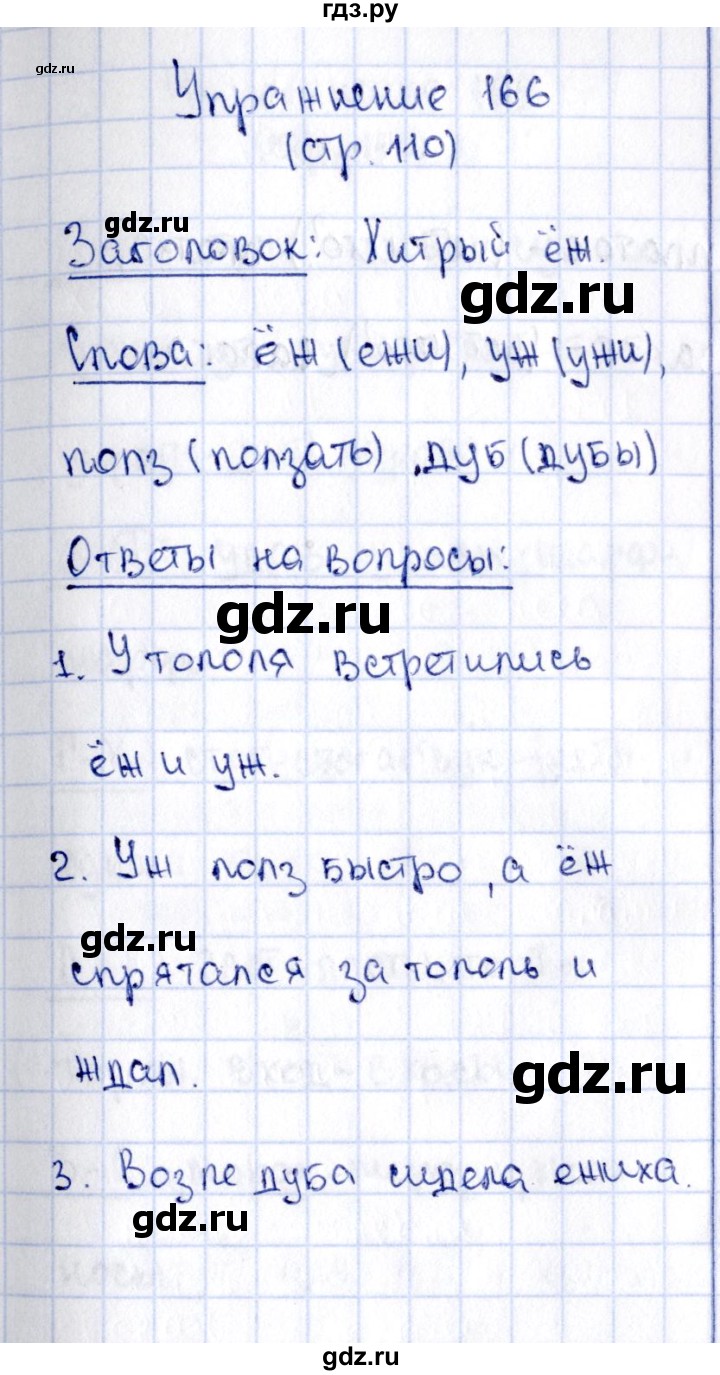 гдз.ру
gdz.ru
Упражнение 166
(стр. 110)
gdz.ru
Заголовок: Хитрый ёж.
gdz.ru
Слова: ёж (ежи), уж (ужи),
полз (ползать), дуб (дубы)
Ответы на вопросы:
gdz.ru
1. У тополя встретились
ёж и уж.
2. Уж полз быстро, а ёж
gdz.ru
спрятался за тополь и
ждал.
gdz.ru
3. Возле дуба сидела ежиха.
gdz.ru
gdz.ru